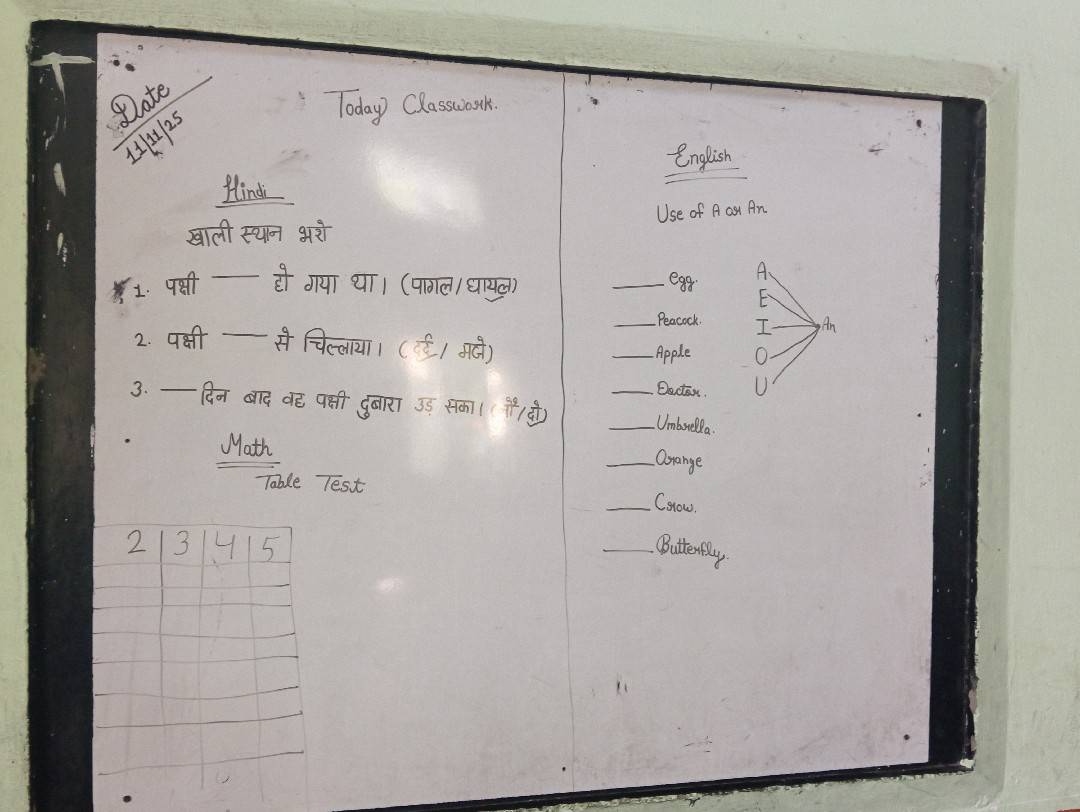 Date
11/11/25
Today Classwork.
Hindi
खाली स्थान भरो
1. पक्षी — हो गया था। (पागल/घायल)
2. पक्षी — से चिल्लाया। (दर्द/ मजे)
3. — दिन बाद वह पक्षी दुबारा उड़ सका। (नौ/दो)
Math
Table Test
2 3 4 5
English
Use of A or An
___ egg.
___ Peacock.
___ Apple
___ Doctor.
___ Umbrella.
___ Orange
___ Crow.
___ Butterfly.
A
E
I An
O
U